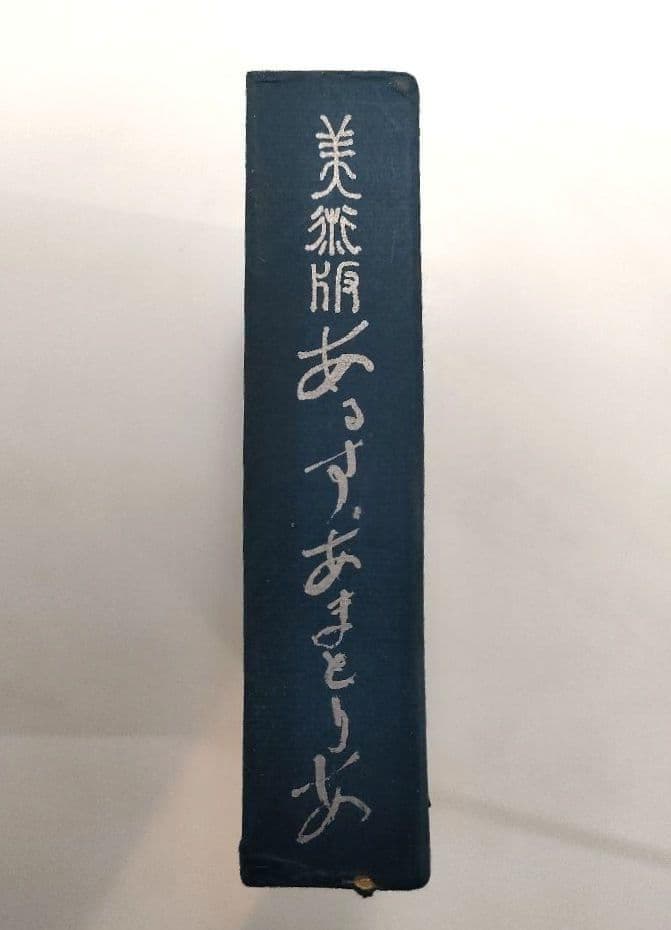 美術版 あるす・あまとりあ